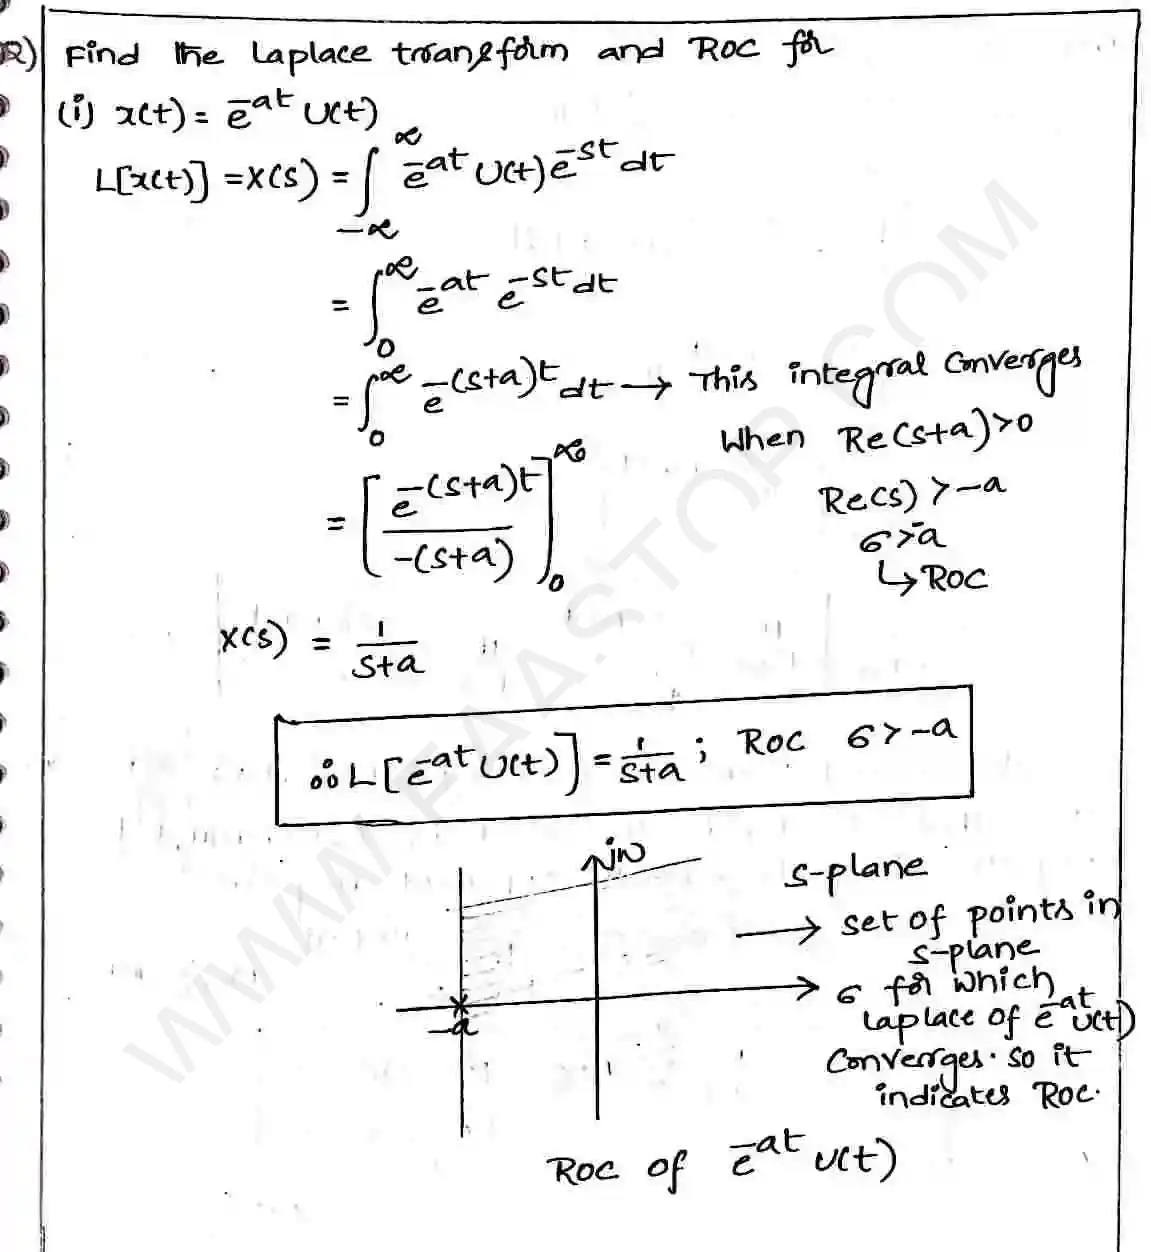 2) Find the Laplace transform and ROC for
(i) x(t) = e^-at u(t)
L[x(t)] = X(s) = ∫_-∞^∞ e^-at u(t) e^-st dt
= ∫_0^∞ e^-at e^-st dt
= ∫_0^∞ e^-(s+a)t dt → This integral converges
when Re(s+a)>0
= [e^-(s+a)t / -(s+a)]_0^∞
Re(s) > -a
σ>-a
↳ ROC
X(s) = 1/(s+a)
∴ L[e^-at u(t)] = 1/(s+a) ; ROC σ > -a
jω
s-plane
→ set of points in
s-plane
σ for which
-a
Laplace of e^-at u(t)
converges. so it
indicates ROC.
ROC of e^-at u(t)
WWW.FAASTOP.COM